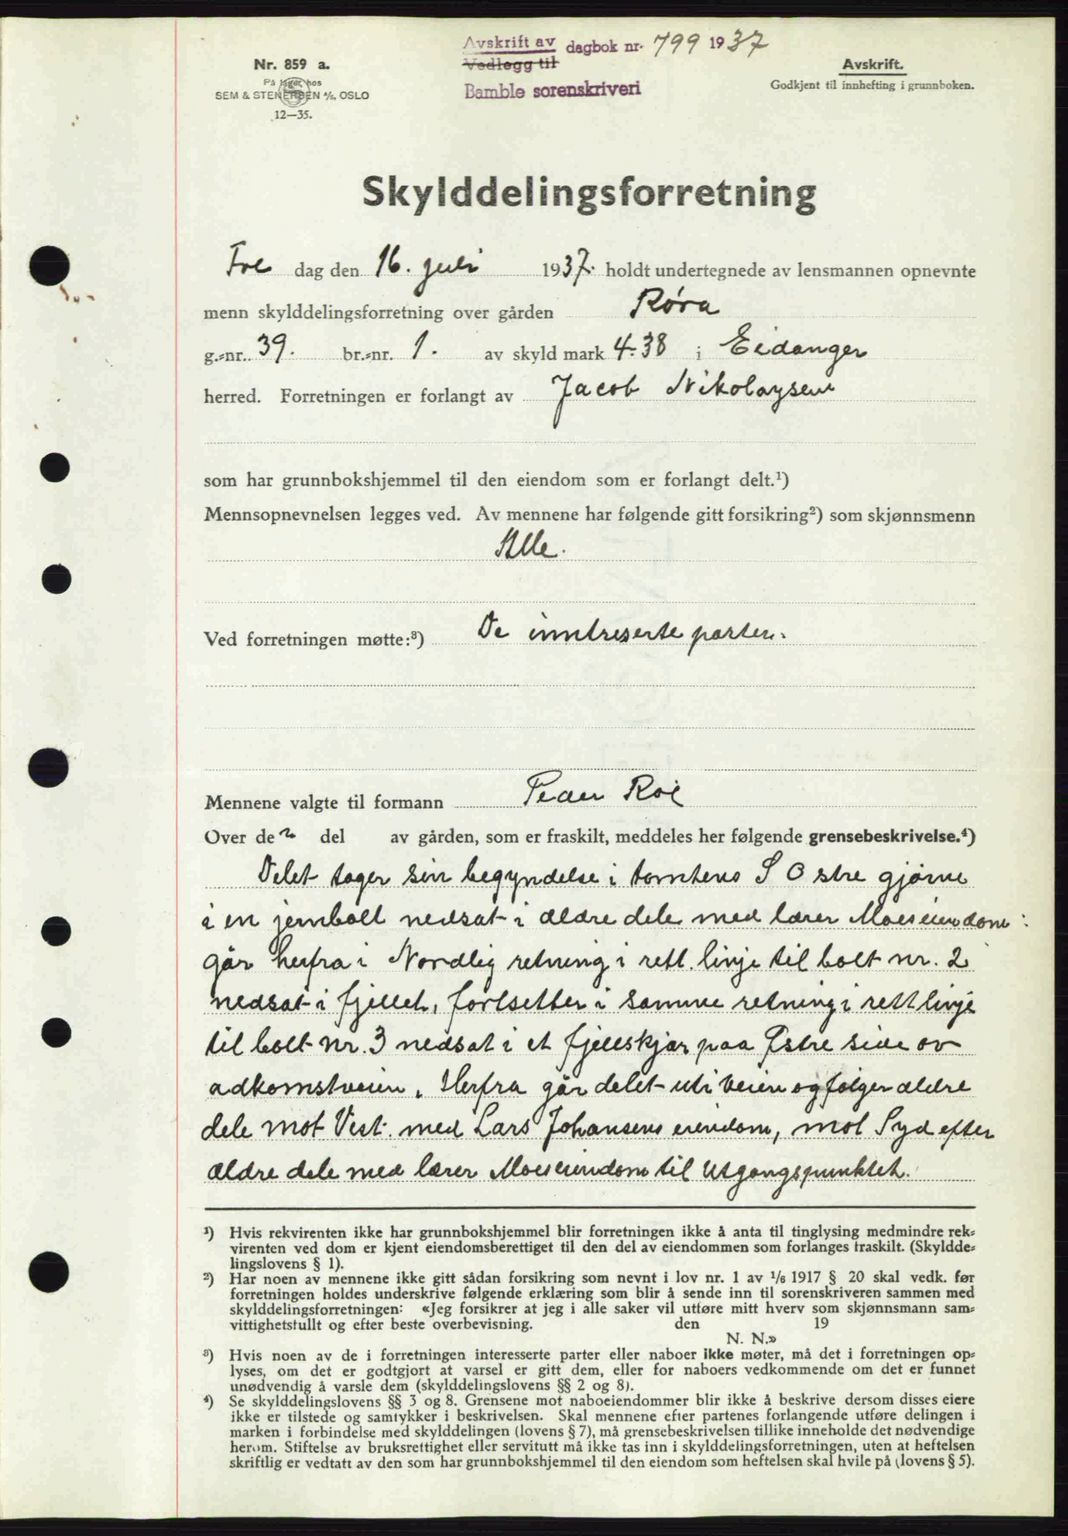 Avskrift av dagbok nr. 799 1937
Vedlegg til
Bamble sorenskriveri
Nr. 859 a.
På lager hos
SEM & STENERSEN A/S, OSLO
12—35.
Avskrift.
Godkjent til innhefting i grunnboken.
Skylddelingsforretning
Fre dag den 16. juli 1937. holdt undertegnede av lensmannen opnevnte
menn skylddelingsforretning over gården Røra
g.-nr. 39. br.-nr. 1. av skyld mark 4.38 i Eidanger
herred. Forretningen er forlangt av Jacob Nikolaysen
som har grunnbokshjemmel til den eiendom som er forlangt delt.¹)
Mennsopnevnelsen legges ved. Av mennene har følgende gitt forsikring²) som skjønnsmenn
Alle.
Ved forretningen møtte:³) De inntreserte parter.
Mennene valgte til formann Peder Roe
Over de n del av gården, som er fraskilt, meddeles her følgende grensebeskrivelse.⁴)
Delet tager sin begyndelse i tomtens S O stre gjørne
i en jernbolt nedsat i ældre dele med lærer Moes eiendom:
går herfra i Nordlig retning i rett linje til bolt nr. 2
nedsat i fjellet, fortsetter i samme retning i rett linje
til bolt nr. 3 nedsat i et fjellskjær paa Østre side av
adkomstveien. Herfra går delet uti veien og følger ældre
dele mot Vest. med Lars Johansens eiendom, mot Syd efter
ældre dele med lærer Moes eiendom til Utgangspunktet.
¹) Hvis rekvirenten ikke har grunnbokshjemmel blir forretningen ikke å anta til tinglysing medmindre rek-
virenten ved dom er kjent eiendomsberettiget til den del av eiendommen som forlanges fraskilt. (Skyldde-
lingslovens § 1).
²) Har noen av mennene ikke gitt sådan forsikring som nevnt i lov nr. 1 av 1/6 1917 § 20 skal vedk. før
forretningen holdes underskrive følgende erklæring som blir å sende inn til sorenskriveren sammen med
skylddelingsforretningen: «Jeg forsikrer at jeg i alle saker vil utføre mitt hverv som skjønnsmann sam-
vittighetsfullt og efter beste overbevisning. den 19
N. N.»
³) Hvis noen av de i forretningen interesserte parter eller naboer ikke møter, må det i forretningen op-
lyses, om det er godtgjort at varsel er gitt dem, eller for naboers vedkommende om det er funnet
unødvendig å varsle dem (skylddelingslovens §§ 2 og 8).
⁴) Se skylddelingslovens §§ 3 og 8. Grensene mot naboeiendommer blir ikke å beskrive dersom disses eiere
ikke er tilstede og samtykker i beskrivelsen. Skal mennene efter partenes forlangende utføre delingen i
marken i forbindelse med skylddelingen (lovens § 7), må grensebeskrivelsen tillike inneholde det nødvendige
herom. Stiftelse av bruksrettighet eller servitutt må ikke tas inn i skylddelingsforretningen, uten at heftelsen
skriftlig er vedtatt av den som har grunnbokshjemmel til den eiendom som heftelsen skal hvile på (lovens § 5).